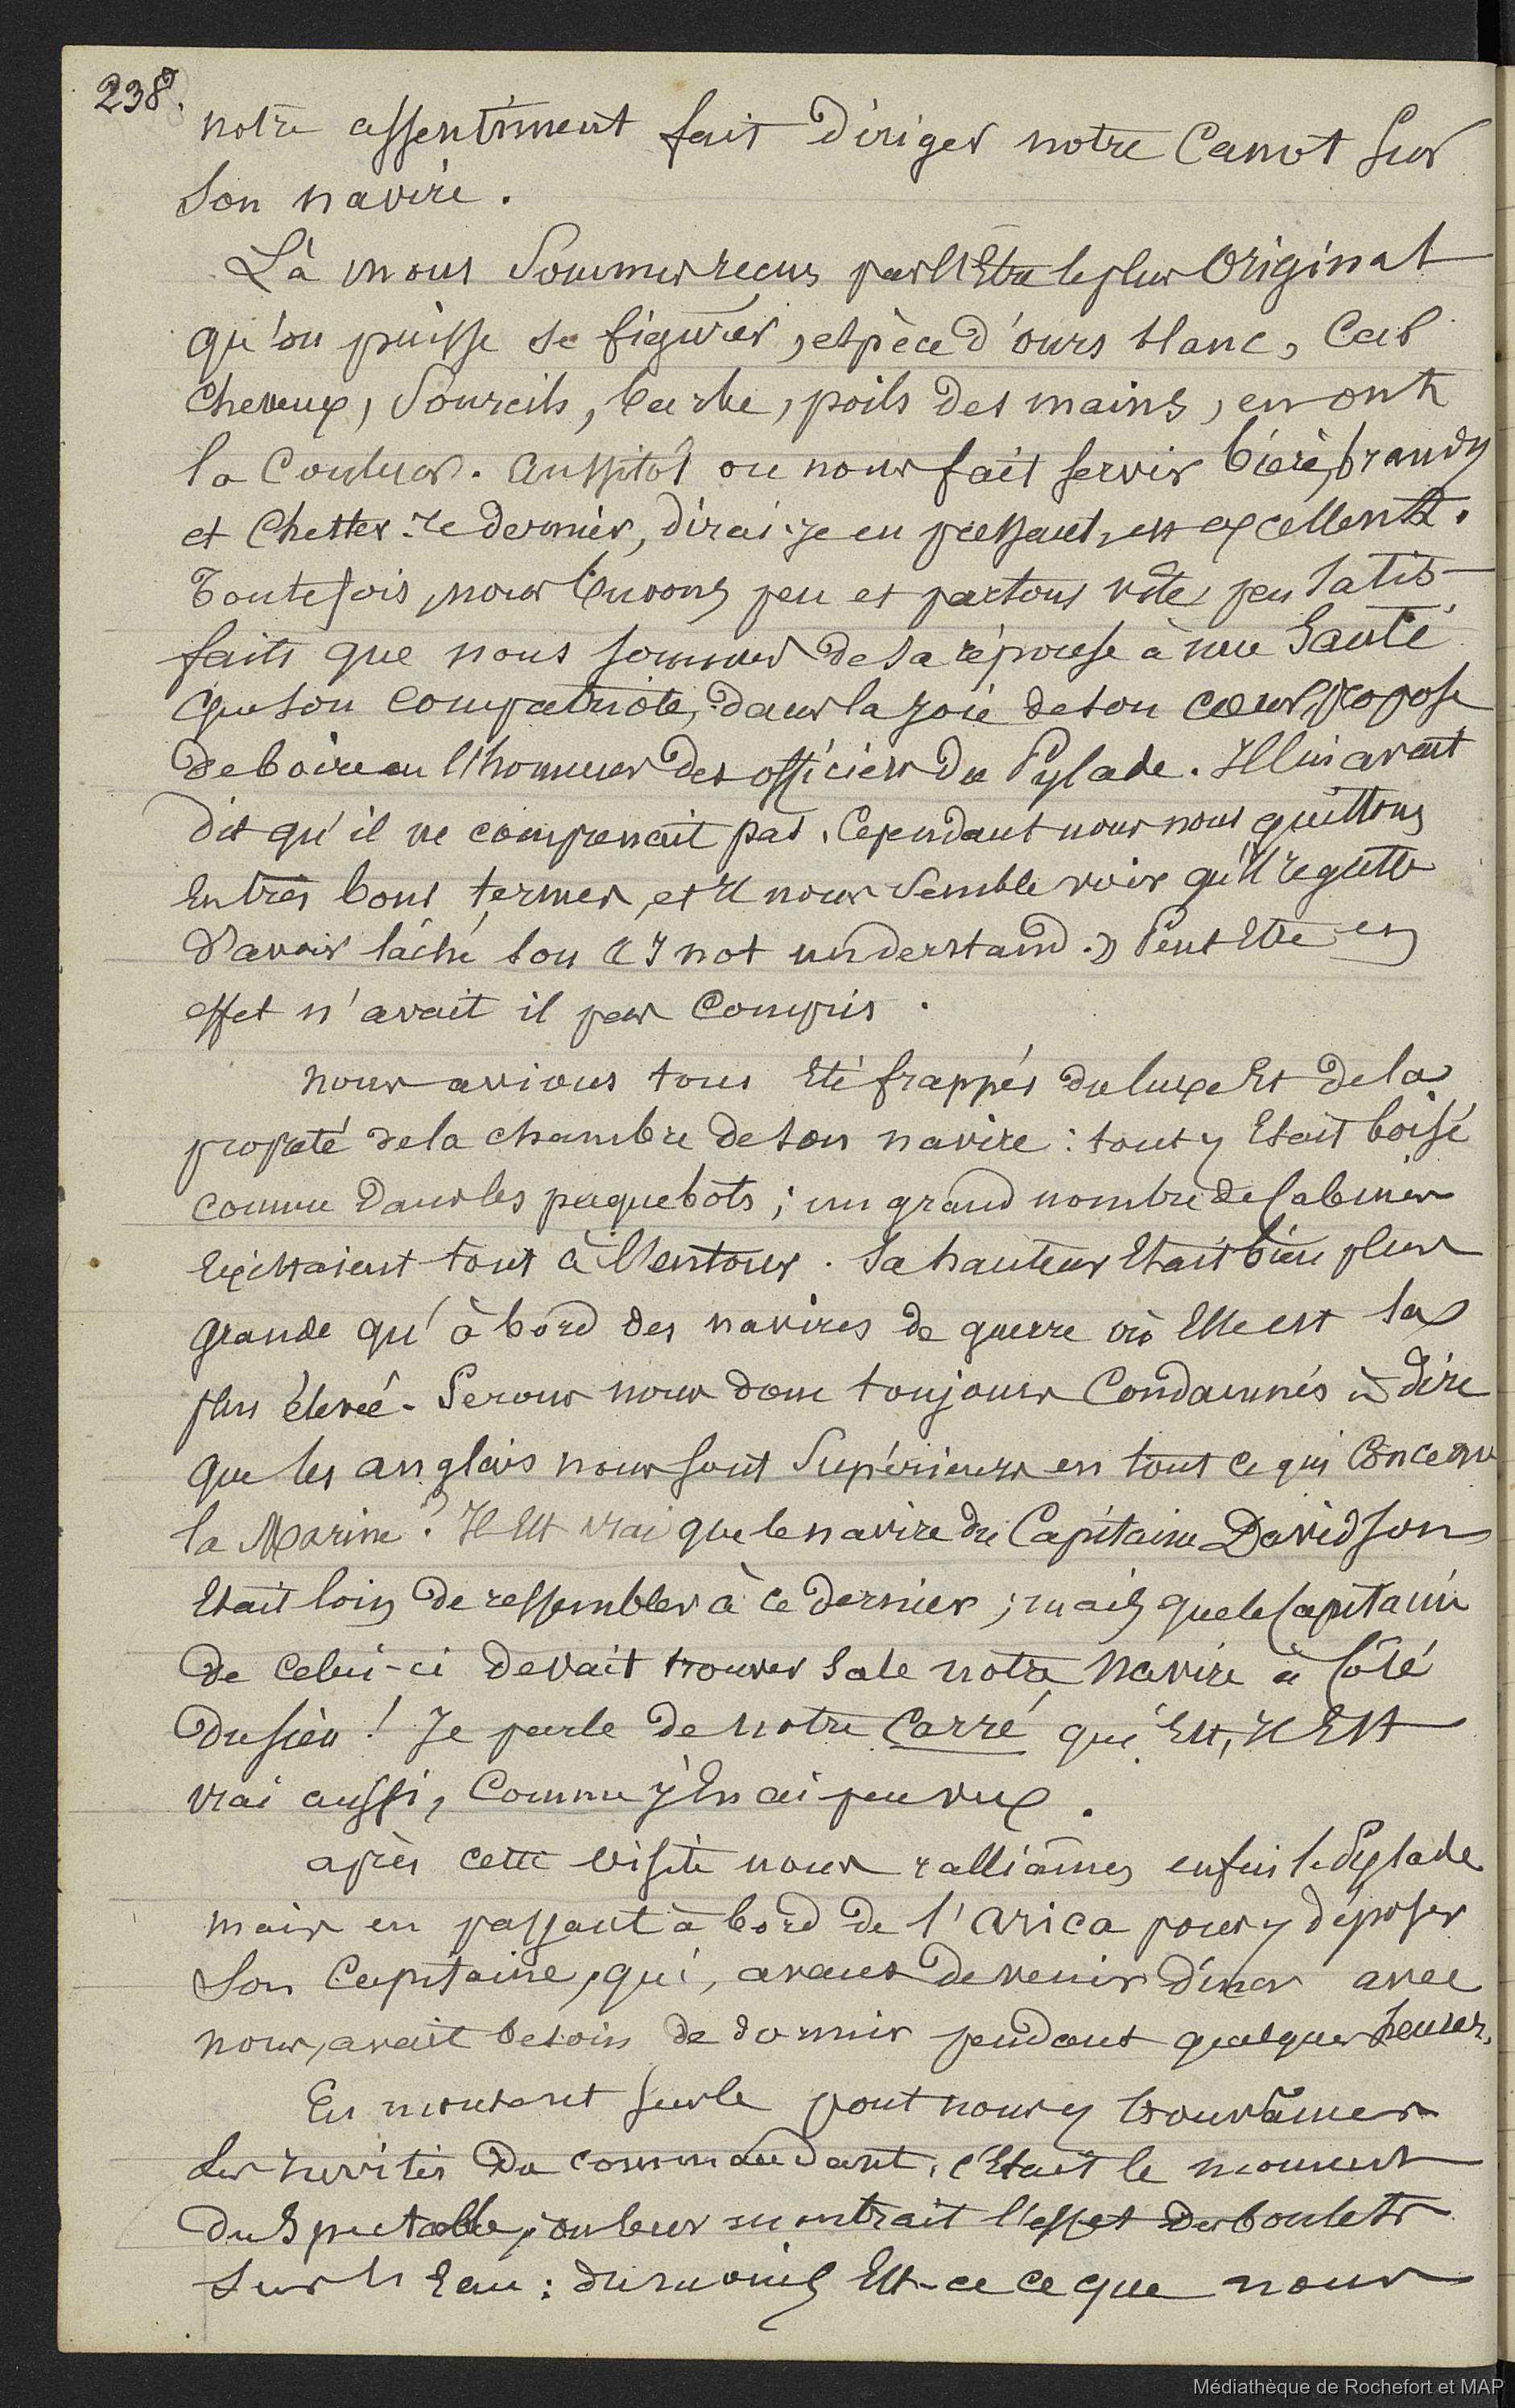 238.
notre assentiment fait diriger notre Canot sur
son navire.
Là nous sommes reçus par l'Etre le plus Original
qu'on puisse se figurer, espèce d'ours blanc, Car
Cheveux, Sourcils, barbe, poils des mains, en ont
la Couleur. Aussitôt on nous fait servir bière, brandy
et Chester. Ce dernier, dirai-je en passant, est excellent.
Toutefois, nous buvons peu et partons vite, peu satis-
faits que nous sommes de sa réponse à une Santé
que son compatriote, dans la joie de son cœur, propose
de boire en l'honneur des officiers du Pylade. Il lui avait
dit qu'il ne comprenait pas. Cependant nous nous quittons
En très bons termes, et il nous semble voir qu'il regrette
d'avoir lâché son « I not understand. » Peut Etre en
effet n'avait il pas Compris.
Nous avions tous Eté frappés du luxe Et de la
propreté de la chambre de son navire : tout y Etait boisé
comme dans les paquebots ; un grand nombre de Cabines
Existaient tout à l'entour. Sa hauteur Etait bien plus
grande qu'à bord des navires de guerre où Elle est la
plus élevée. Serons nous donc toujours Condamnés à dire
que les anglais nous sont Supérieurs en tout ce qui Concerne
la Marine ? Il Est vrai que le navire du Capitaine Davidson
Etait loin de ressembler à ce dernier ; mais que le Capitaine
de celui-ci devait trouver sale notre Navire à Côté
du sien ! Je parle de notre Carré qui Est, Il Est
vrai aussi, Comme j'En ai peu vux.
après cette visite nous ralliâmes enfin le Pylade
mais en passant à bord de l'Arica pour y déposer
Son Capitaine, qui, avant de venir dîner avec
nous, avait besoin de dormir pendant quelques heures.
En montant sur le pont nous y trouvâmes
des invités du commandant. C'Etait le moment
du Spectacle ; on leur montrait l'effet des boulets
Sur l'Eau : du moins Est-ce ce que nous
Médiathèque de Rochefort et MAP